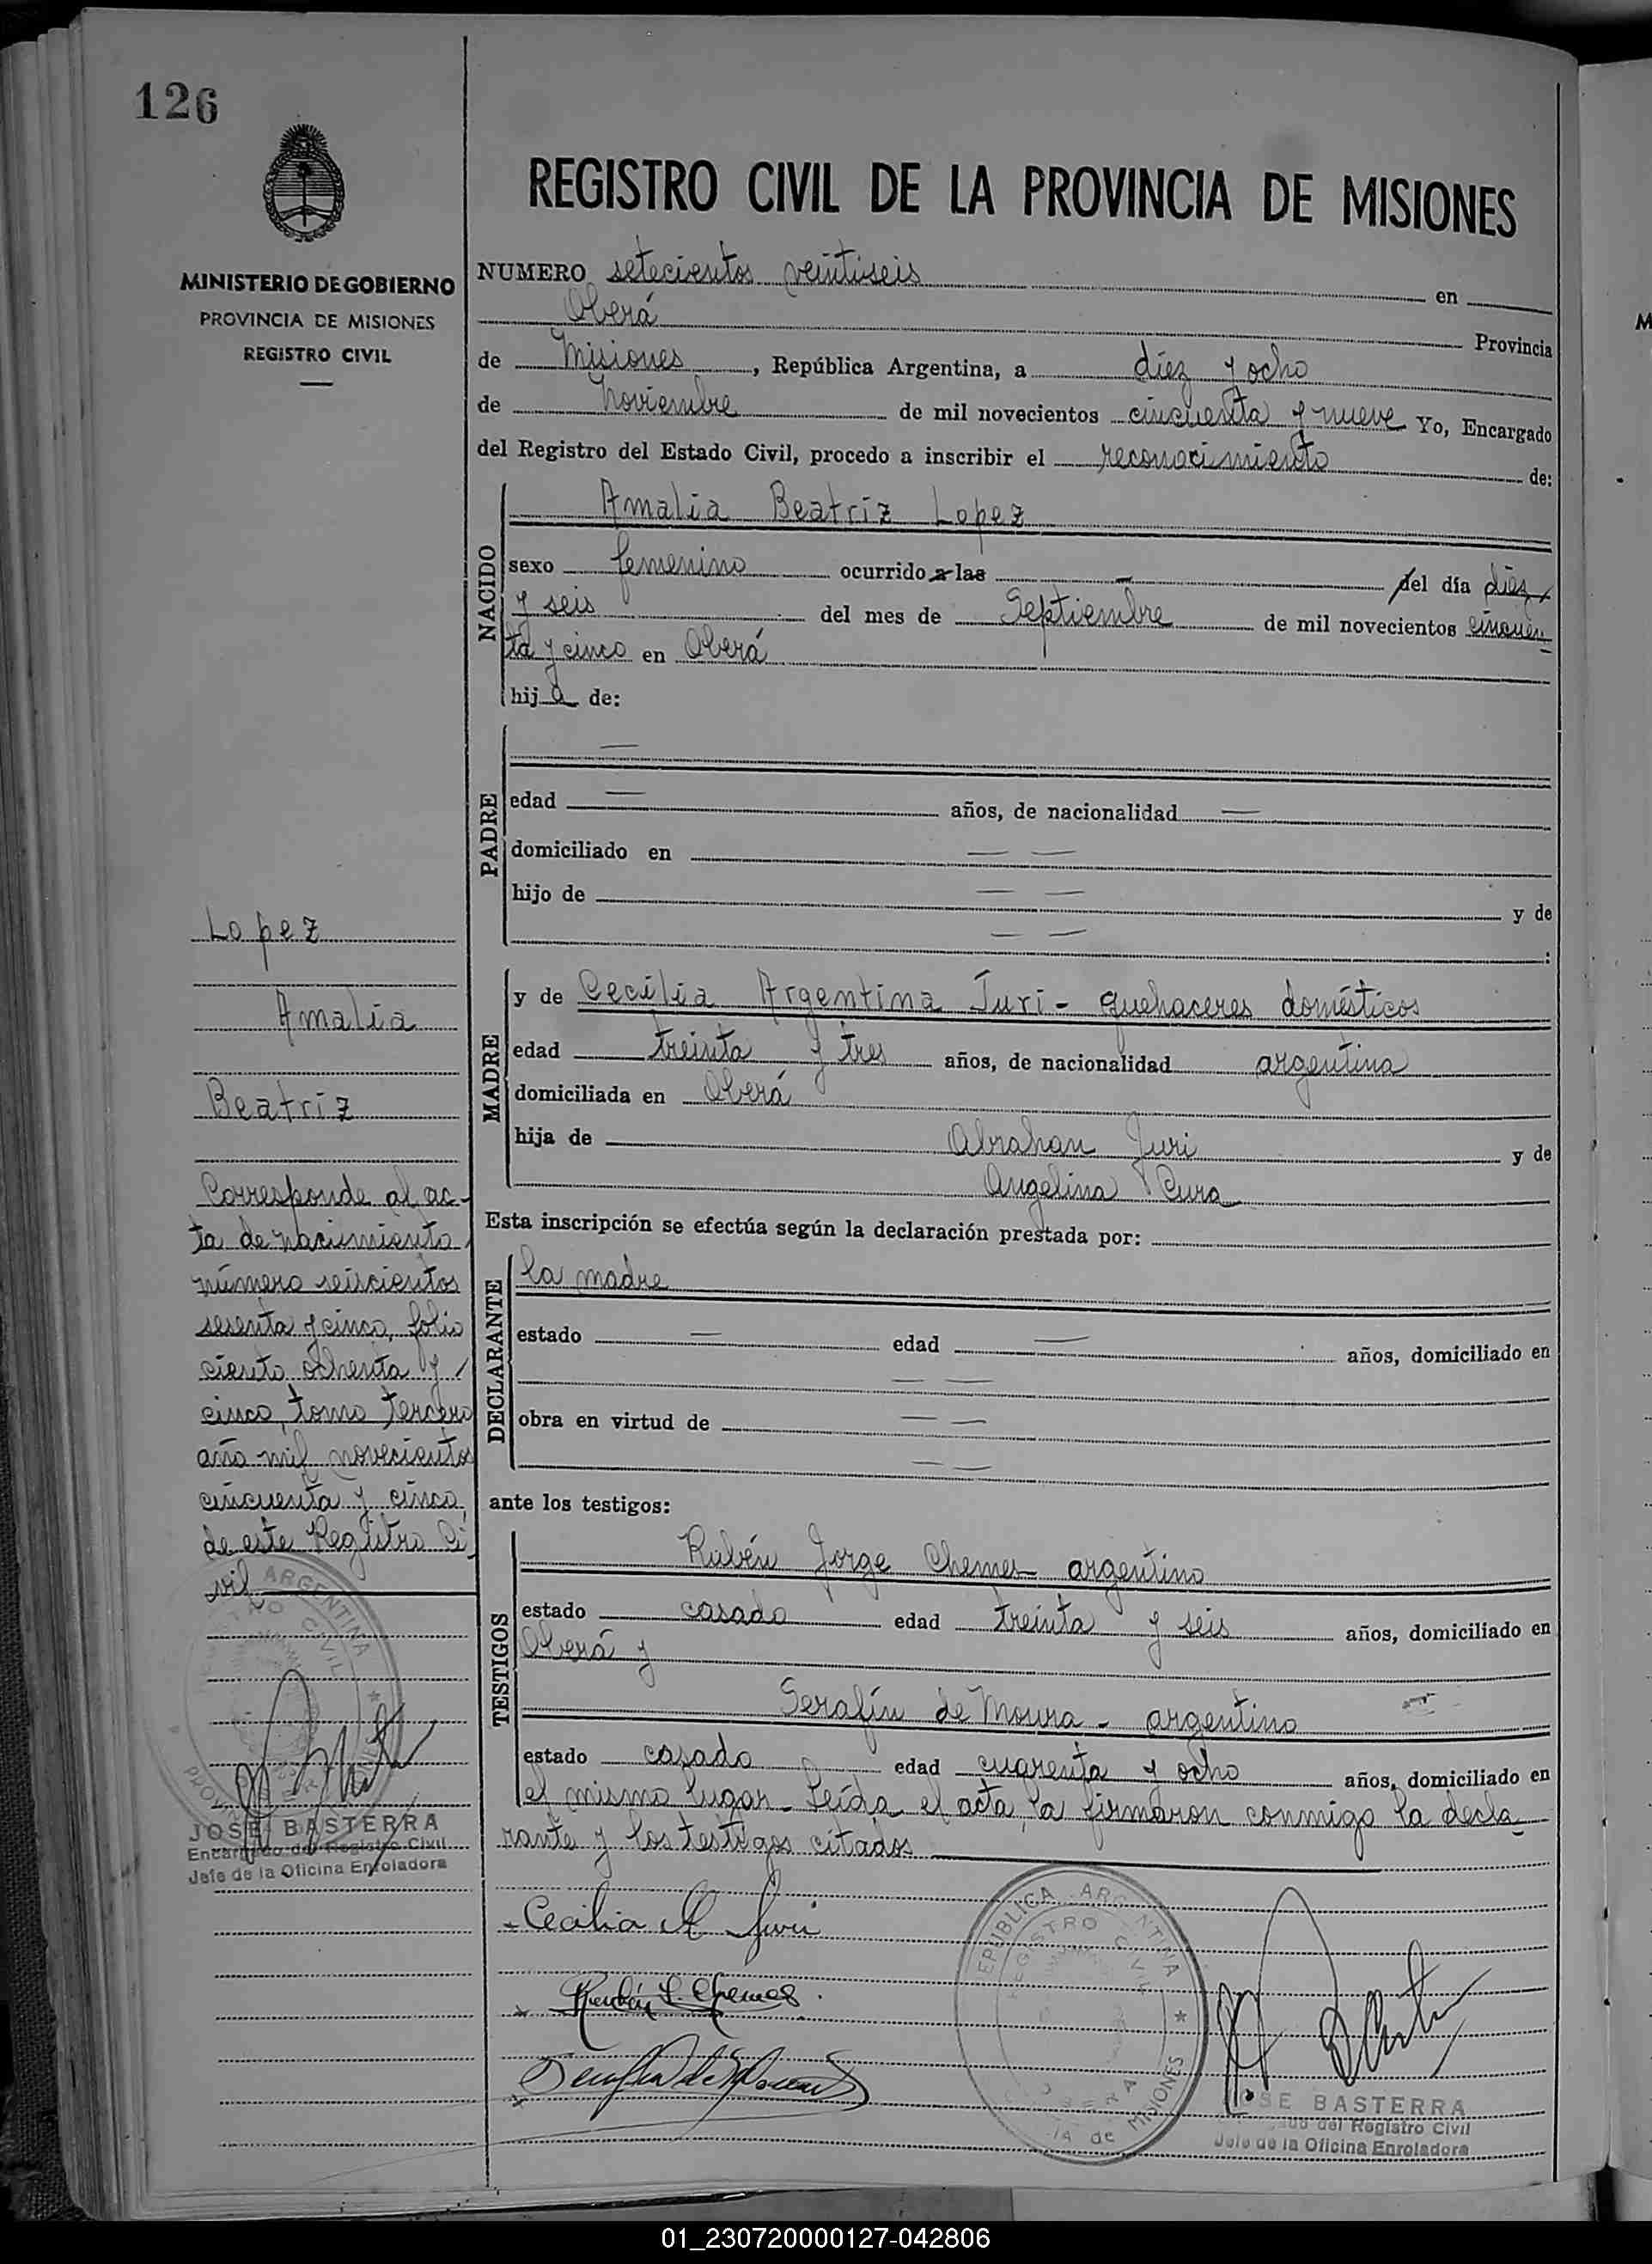 126
MINISTERIO DE GOBIERNO
PROVINCIA DE MISIONES
REGISTRO CIVIL
Lopez
Amalia
Beatriz
Corresponde al ac-
ta de nacimiento
número seiscientos
sesenta y cinco, folio
ciento ochenta y
cinco, tomo tercero
año mil novecientos
cincuenta y cinco
de este Registro Ci
vil
JOSE BASTERRA
Encargado del Registro Civil
Jefe de la Oficina Enroladora
REGISTRO CIVIL DE LA PROVINCIA DE MISIONES
NUMERO setecientos veintiseis en
Oberá Provincia
de Misiones, República Argentina, a diez y ocho
de Noviembre de mil novecientos cincuenta y nueve Yo, Encargado
del Registro del Estado Civil, procedo a inscribir el reconocimiento de:
NACIDO
Amalia Beatriz Lopez
sexo femenino ocurrido a las — del día diez
y seis del mes de Septiembre de mil novecientos cincuen
ta y cinco en Oberá
hija de:
PADRE
—
edad — años, de nacionalidad —
domiciliado en — —
hijo de — — y de
— — :
MADRE
y de Cecilia Argentina Juri - quehaceres domésticos
edad treinta y tres años, de nacionalidad argentina
domiciliada en Oberá
hija de Abrahan Juri y de
Angelina Cura
Esta inscripción se efectúa según la declaración prestada por:
DECLARANTE
la madre
estado — edad — años, domiciliado en
— —
obra en virtud de — —
— —
ante los testigos:
TESTIGOS
Rubén Jorge Chemes argentino
estado casado edad treinta y seis años, domiciliado en
Oberá y
Serafín de Moura - argentino
estado casado edad cuarenta y ocho años, domiciliado en
el mismo lugar - Leída el acta, la firmaron conmigo la decla
rante y los testigos citados
Cecilia A Juri
Rubén J. Chemes
REPUBLICA ARGENTINA
REGISTRO CIVIL
OBERA
MISIONES
JOSE BASTERRA
del Registro Civil
Jefe de la Oficina Enroladora
01_230720000127-042806